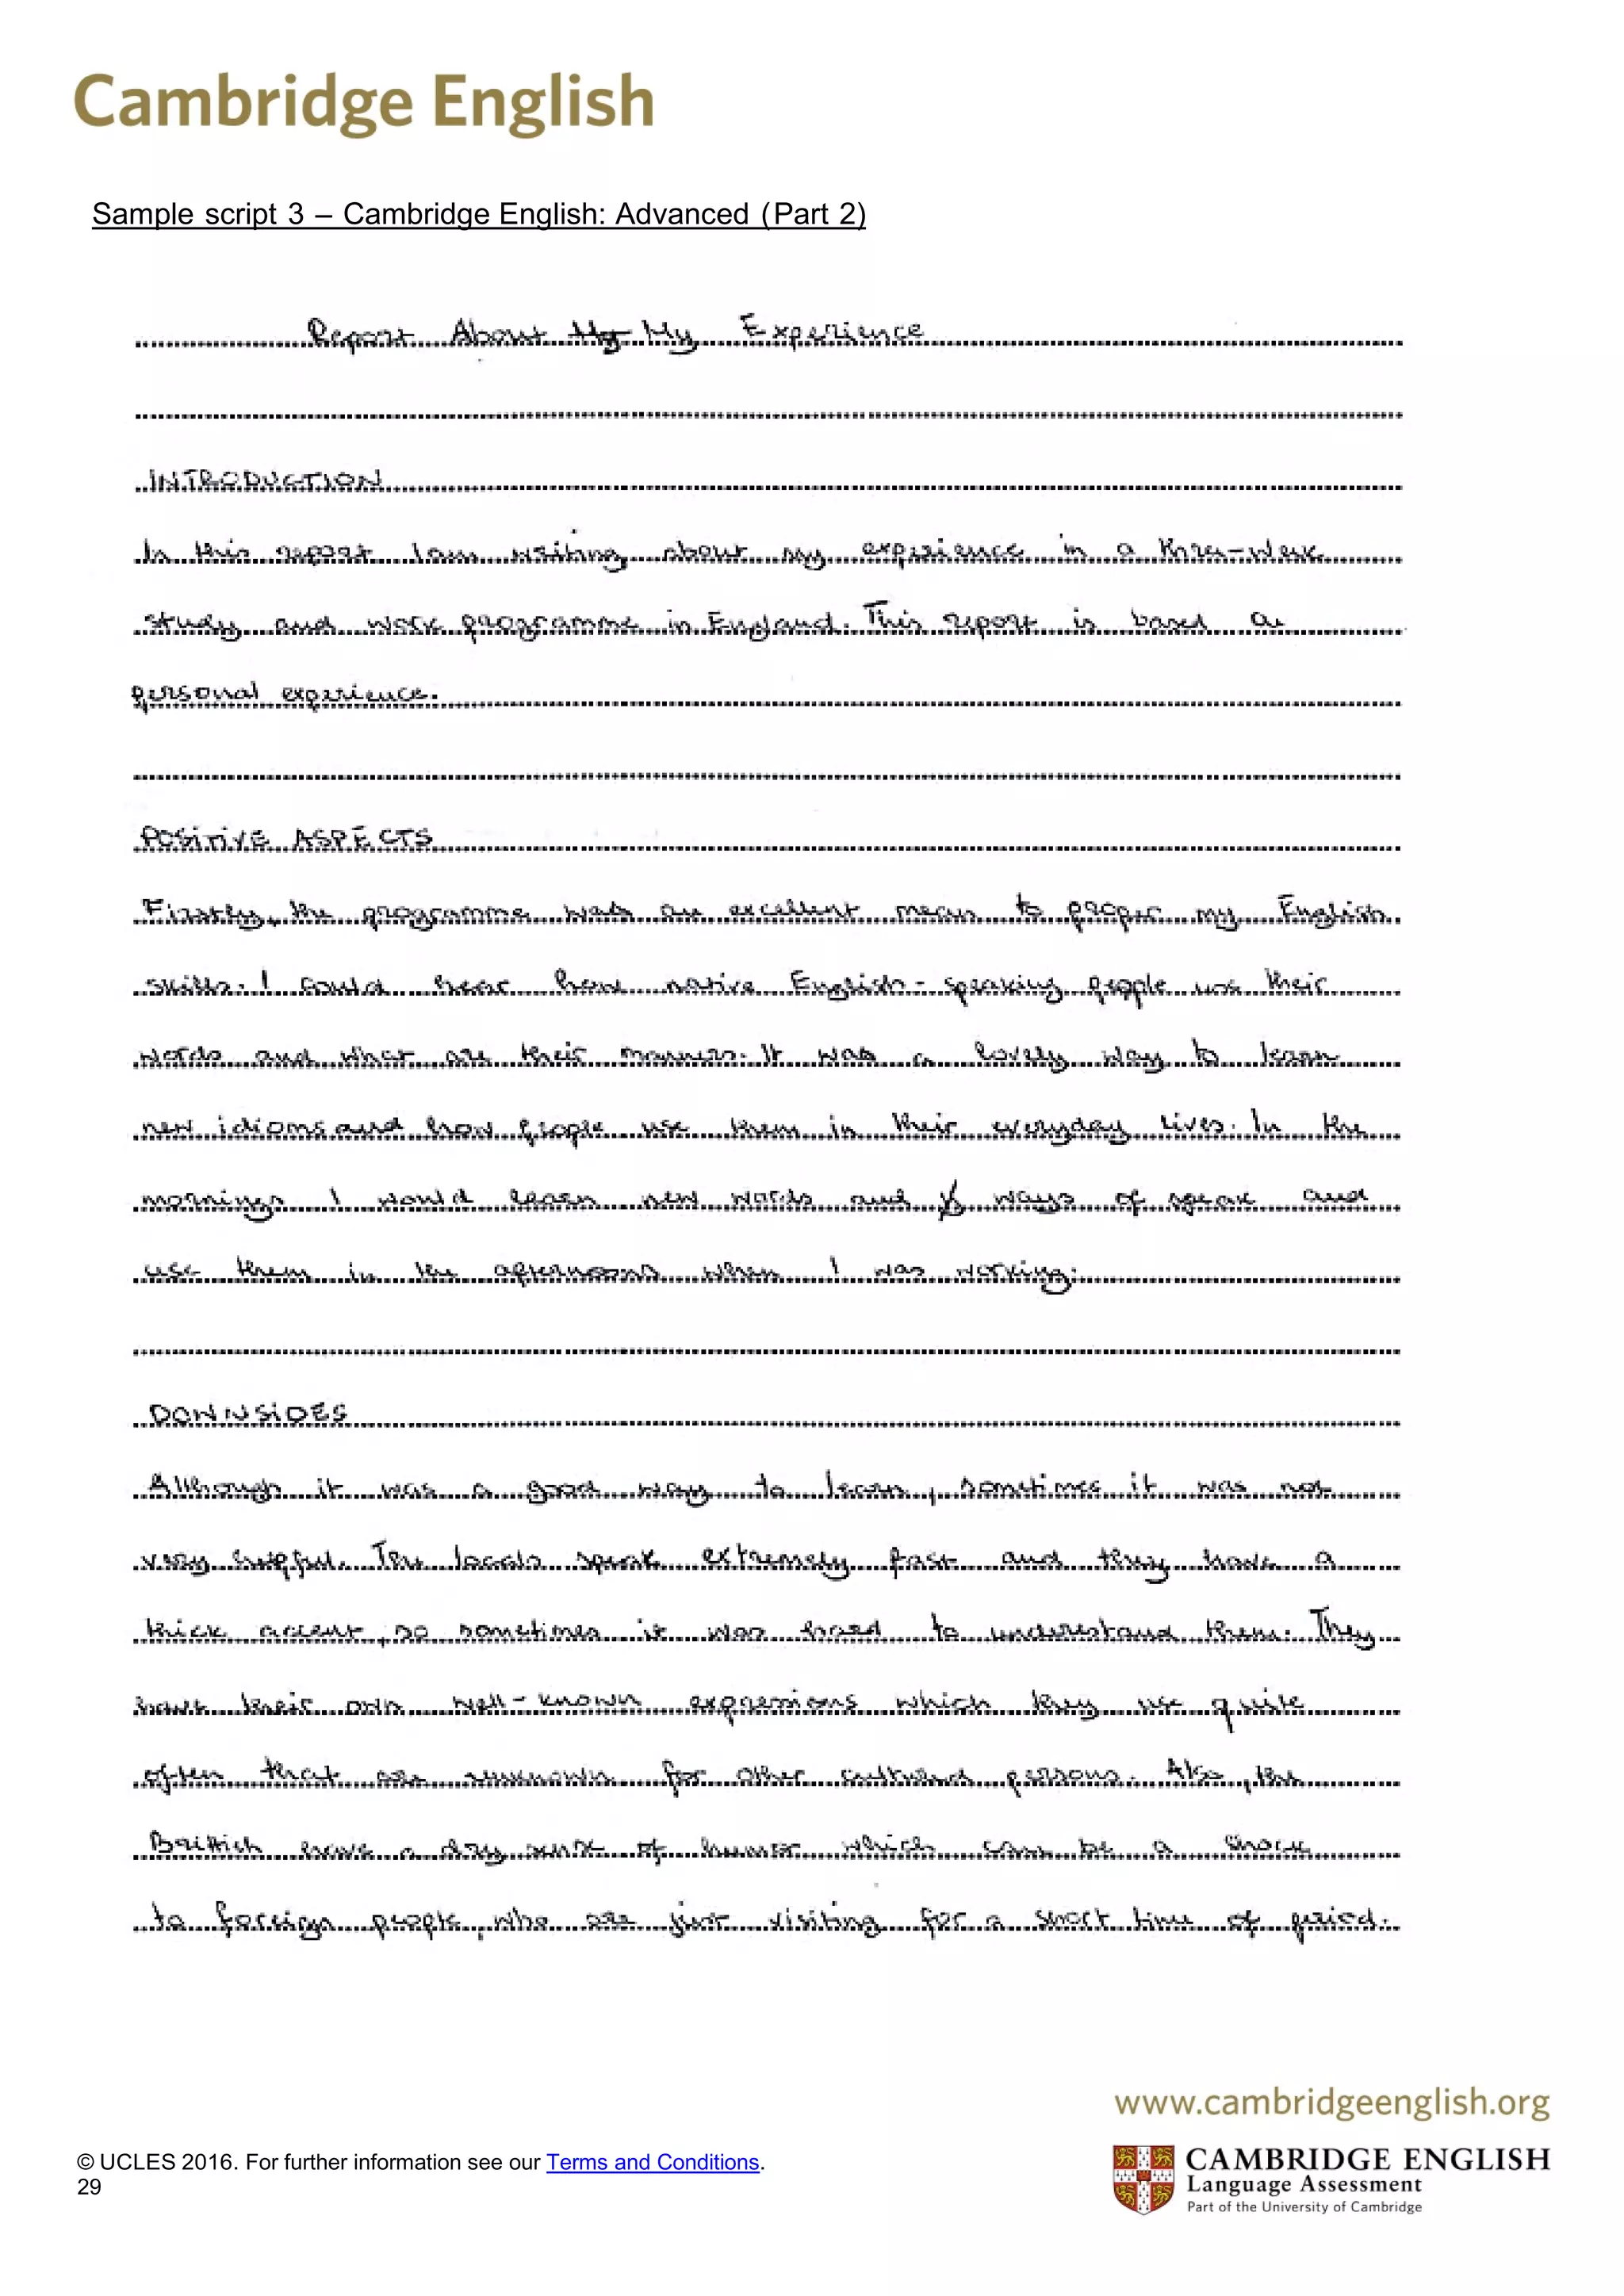 Cambridge English
Sample script 3 – Cambridge English: Advanced (Part 2)
Report About My My Experience
INTRODUCTION
In this report I am writing about my experience in a three-week
study and work programme in England. This report is based on
personal experience.
POSITIVE ASPECTS
Firstly, the programme was an excellent mean to proper my English
skills. I could hear how native English-speaking people use their
words and what are their manners. It was a lovely way to learn
new idioms and how people use them in their everyday lives. In the
mornings I would learn new words and ways of speak and
use them in the afternoons when I was working.
DOWNSIDES
Although it was a good way to learn, sometimes it was not
very helpful. The locals speak extremely fast and they have a
thick accent, so sometimes it was hard to understand them. They
have their own well-known expressions which they use quite
often that are unknown for other cultural persons. Also, the
Brittish have a dry sense of humor which can be a shock
to foreign people, who are just visiting for a short time of period.
www.cambridgeenglish.org
© UCLES 2016. For further information see our Terms and Conditions.
29
CAMBRIDGE ENGLISH
Language Assessment
Part of the University of Cambridge